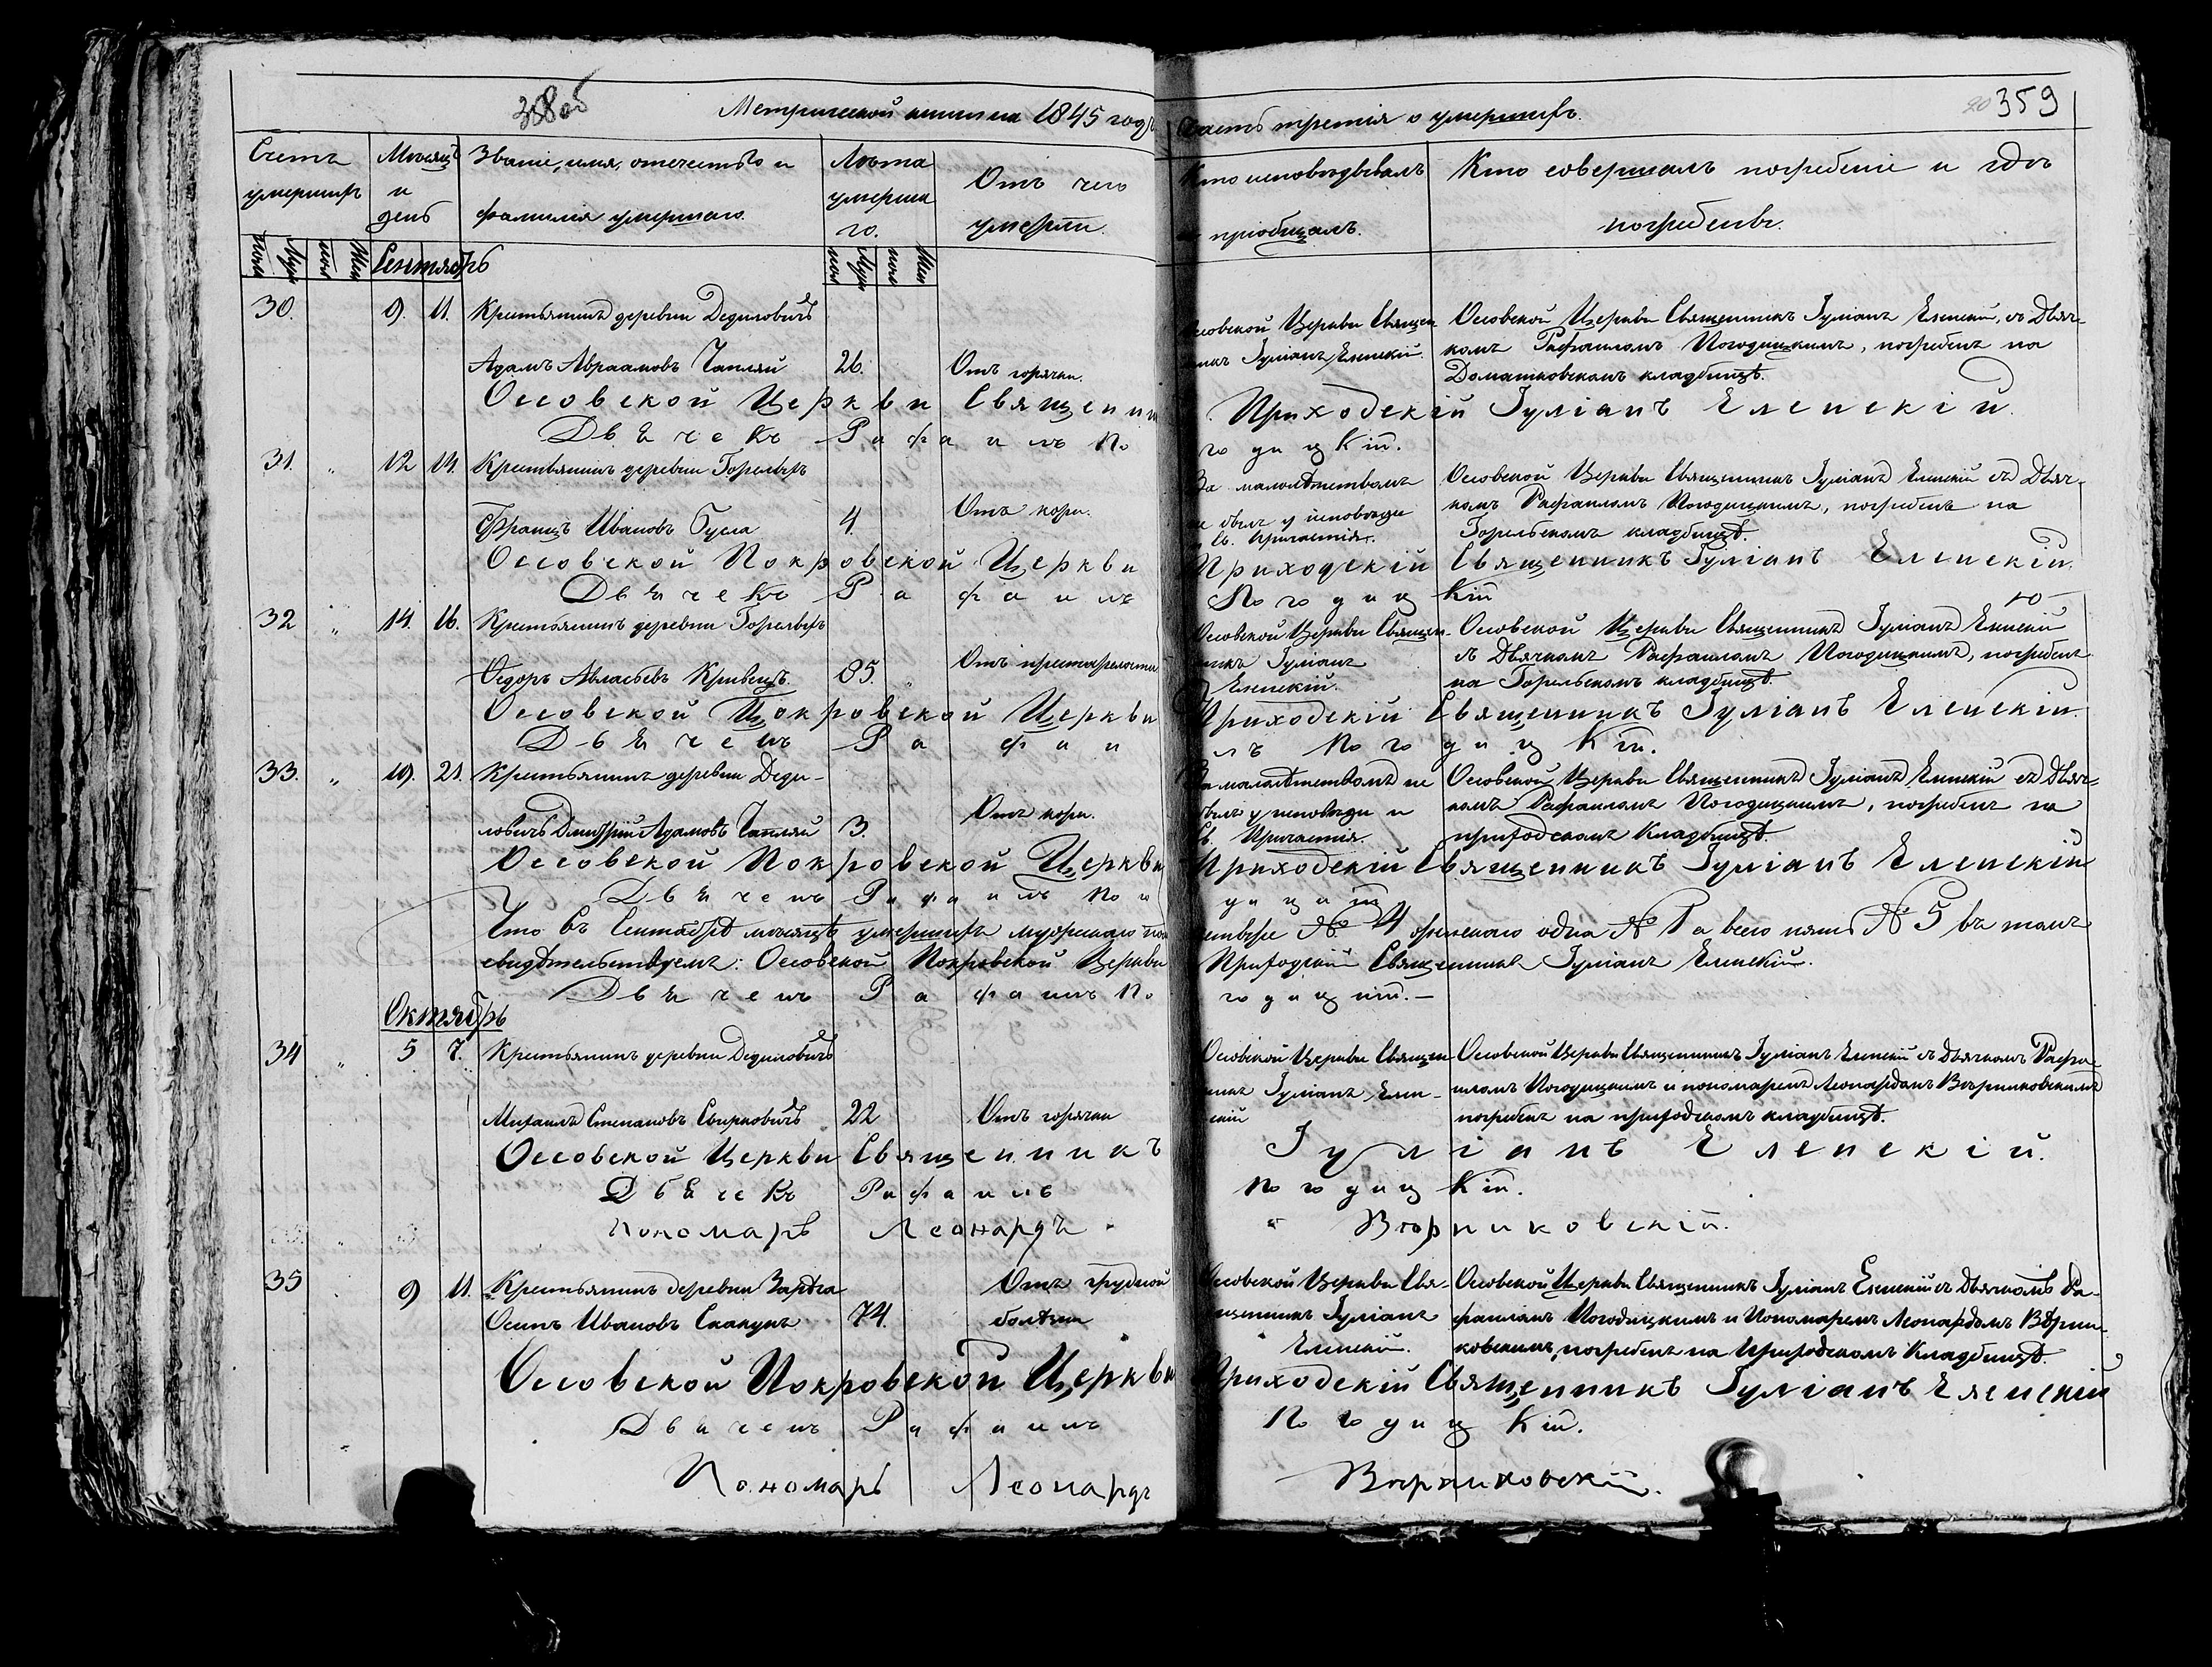 358об
Метрической книги на 1845 годъ
Часть третія о умершихъ.
359
Счетъ умершихъ
Мѣсяцъ и день
Званіе, имя, отечество и фамилія умершаго.
Лѣта умершаго.
Отъ чего умерли.
Кто исповѣдывалъ и пріобщалъ.
Кто совершалъ погребеніе и гдѣ погребенъ.
Сентябрь
30. 9. 11. Крестьянинъ деревни Дедиловичь
Адамъ Авраамовъ Чапляй 26. Отъ горячки.
Осовской Церкви Священникъ Іуліанъ Еленскій.
Осовской Церкви Священникъ Іуліанъ Еленскій, съ Дьяч-
комъ Рафаиломъ Погодицкимъ, погребенъ на
Домашковскомъ кладбищѣ.
Осовской Церкви Священникъ Приходскій Іуліанъ Еленскій.
Дьячекъ Рафаилъ Погодицкій.
31. 12 14. Крестьянинъ деревни Горелецъ
Францъ Ивановъ Бусла 4. Отъ кори.
За малолѣтствомъ
не былъ у исповѣди
и Св. Причастія.
Осовской Церкви Священникъ Іуліанъ Еленскій съ Дьяч-
комъ Рафаиломъ Погодицкимъ, погребенъ на
Горельскомъ кладбищѣ.
Осовской Покровской Церкви Приходскій Священникъ Іуліанъ Еленскій.
Дьячекъ Рафаилъ Погодицкій
32 14. 16. Крестьянинъ деревни Горелецъ
Федоръ Авласьевъ Кривецъ 85. Отъ престарелости
Осовской Церкви Священ-
никъ Іуліанъ
Еленскій.
Осовской Церкви Священникъ Іуліанъ Еленскій
съ Дьячкомъ Рафаиломъ Погодицкимъ, погребенъ
на Горельскомъ кладбищѣ.
Осовской Покровской Церкви Приходскій Священникъ Іуліанъ Еленскій.
Дьячекъ Рафаилъ Погодицкій.
33. 19. 21. Крестьянинъ деревни Деди-
ловичь Дмитрій Адамовъ Чапляй 3. Отъ кори.
За малолѣтствомъ не
былъ у исповѣди и
Св. Причастія.
Осовской Церкви Священникъ Іуліанъ Еленскій съ Дьяч-
комъ Рафаиломъ Погодицкимъ, погребенъ на
приходскомъ Кладбищѣ.
Осовской Покровской Церкви Приходскій Священникъ Іуліанъ Еленскій
Дьячекъ Рафаилъ
Что въ Сентябрѣ мѣсяцѣ умершихъ мужескаго пола четверо № 4 женскаго одна № 1 а всего пять № 5 въ томъ
свидѣтельствуемъ: Осовской Покровской Церкви Приходскій Священникъ Іуліанъ Еленскій.
Дьячекъ Рафаилъ Погодицкій.
Октябрь
34 5 7. Крестьянинъ деревни Дедиловичь
Михаилъ Степановъ Свирковичь 22 Отъ горячки
Осовской Церкви Священ-
никъ Іуліанъ Елен-
скій
Осовской Церкви Священникъ Іуліанъ Еленскій съ Дьячкомъ Рафа-
иломъ Погодицкимъ и пономаремъ Леонардомъ Вѣрниковскимъ
погребенъ на приходскомъ кладбищѣ.
Осовской Церкви Священникъ Іуліанъ Еленскій.
Дьячекъ Рафаилъ Погодицкій.
Пономарь Леонардъ Вѣрниковскій.
35 9 11. Крестьянинъ деревни Зарѣга
Осипъ Ивановъ Скакунъ 74. Отъ грудной
болѣзни
Осовской Церкви Свя-
щенникъ Іуліанъ
Еленскій.
Осовской Церкви Священникъ Іуліанъ Еленскій съ Дьячкомъ Ра-
фаиломъ Погодицкимъ и Пономаремъ Леонардомъ Вѣрни-
ковскимъ, погребенъ на Приходскомъ Кладбищѣ.
Осовской Покровской Церкви Приходскій Священникъ Іуліанъ Еленскій
Дьячекъ Рафаилъ Погодицкій.
Пономарь Леонардъ Вѣрниковскій.